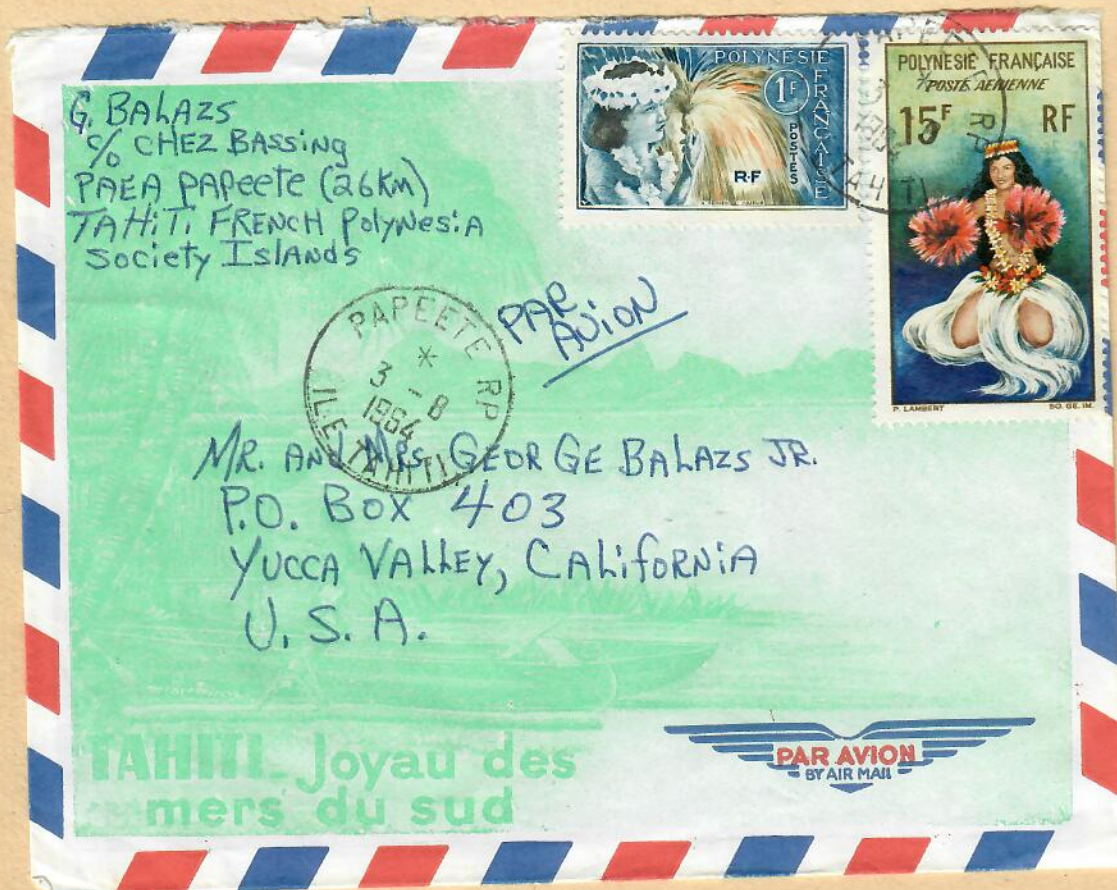 G. BALAZS
C/O CHEZ BASSING
PAEA PAPEETE (26KM)
TAHITI FRENCH POLYNESIA
SOCIETY ISLANDS
POLYNESIE
FRANÇAISE
1F
POSTES
RF
POLYNESIE FRANÇAISE
POSTE AERIENNE
15F RF
P. LAMBERT SO. GE. IM.
PAPEETE RP
TAHITI
PAR
AVION
PAPEETE RP
*
3 - 8
1964
ILE TAHITI
MR. AND MRS GEORGE BALAZS JR.
P.O. BOX 403
YUCCA VALLEY, CALIFORNIA
U. S. A.
TAHITI Joyau des
mers du sud
PAR AVION
BY AIR MAIL